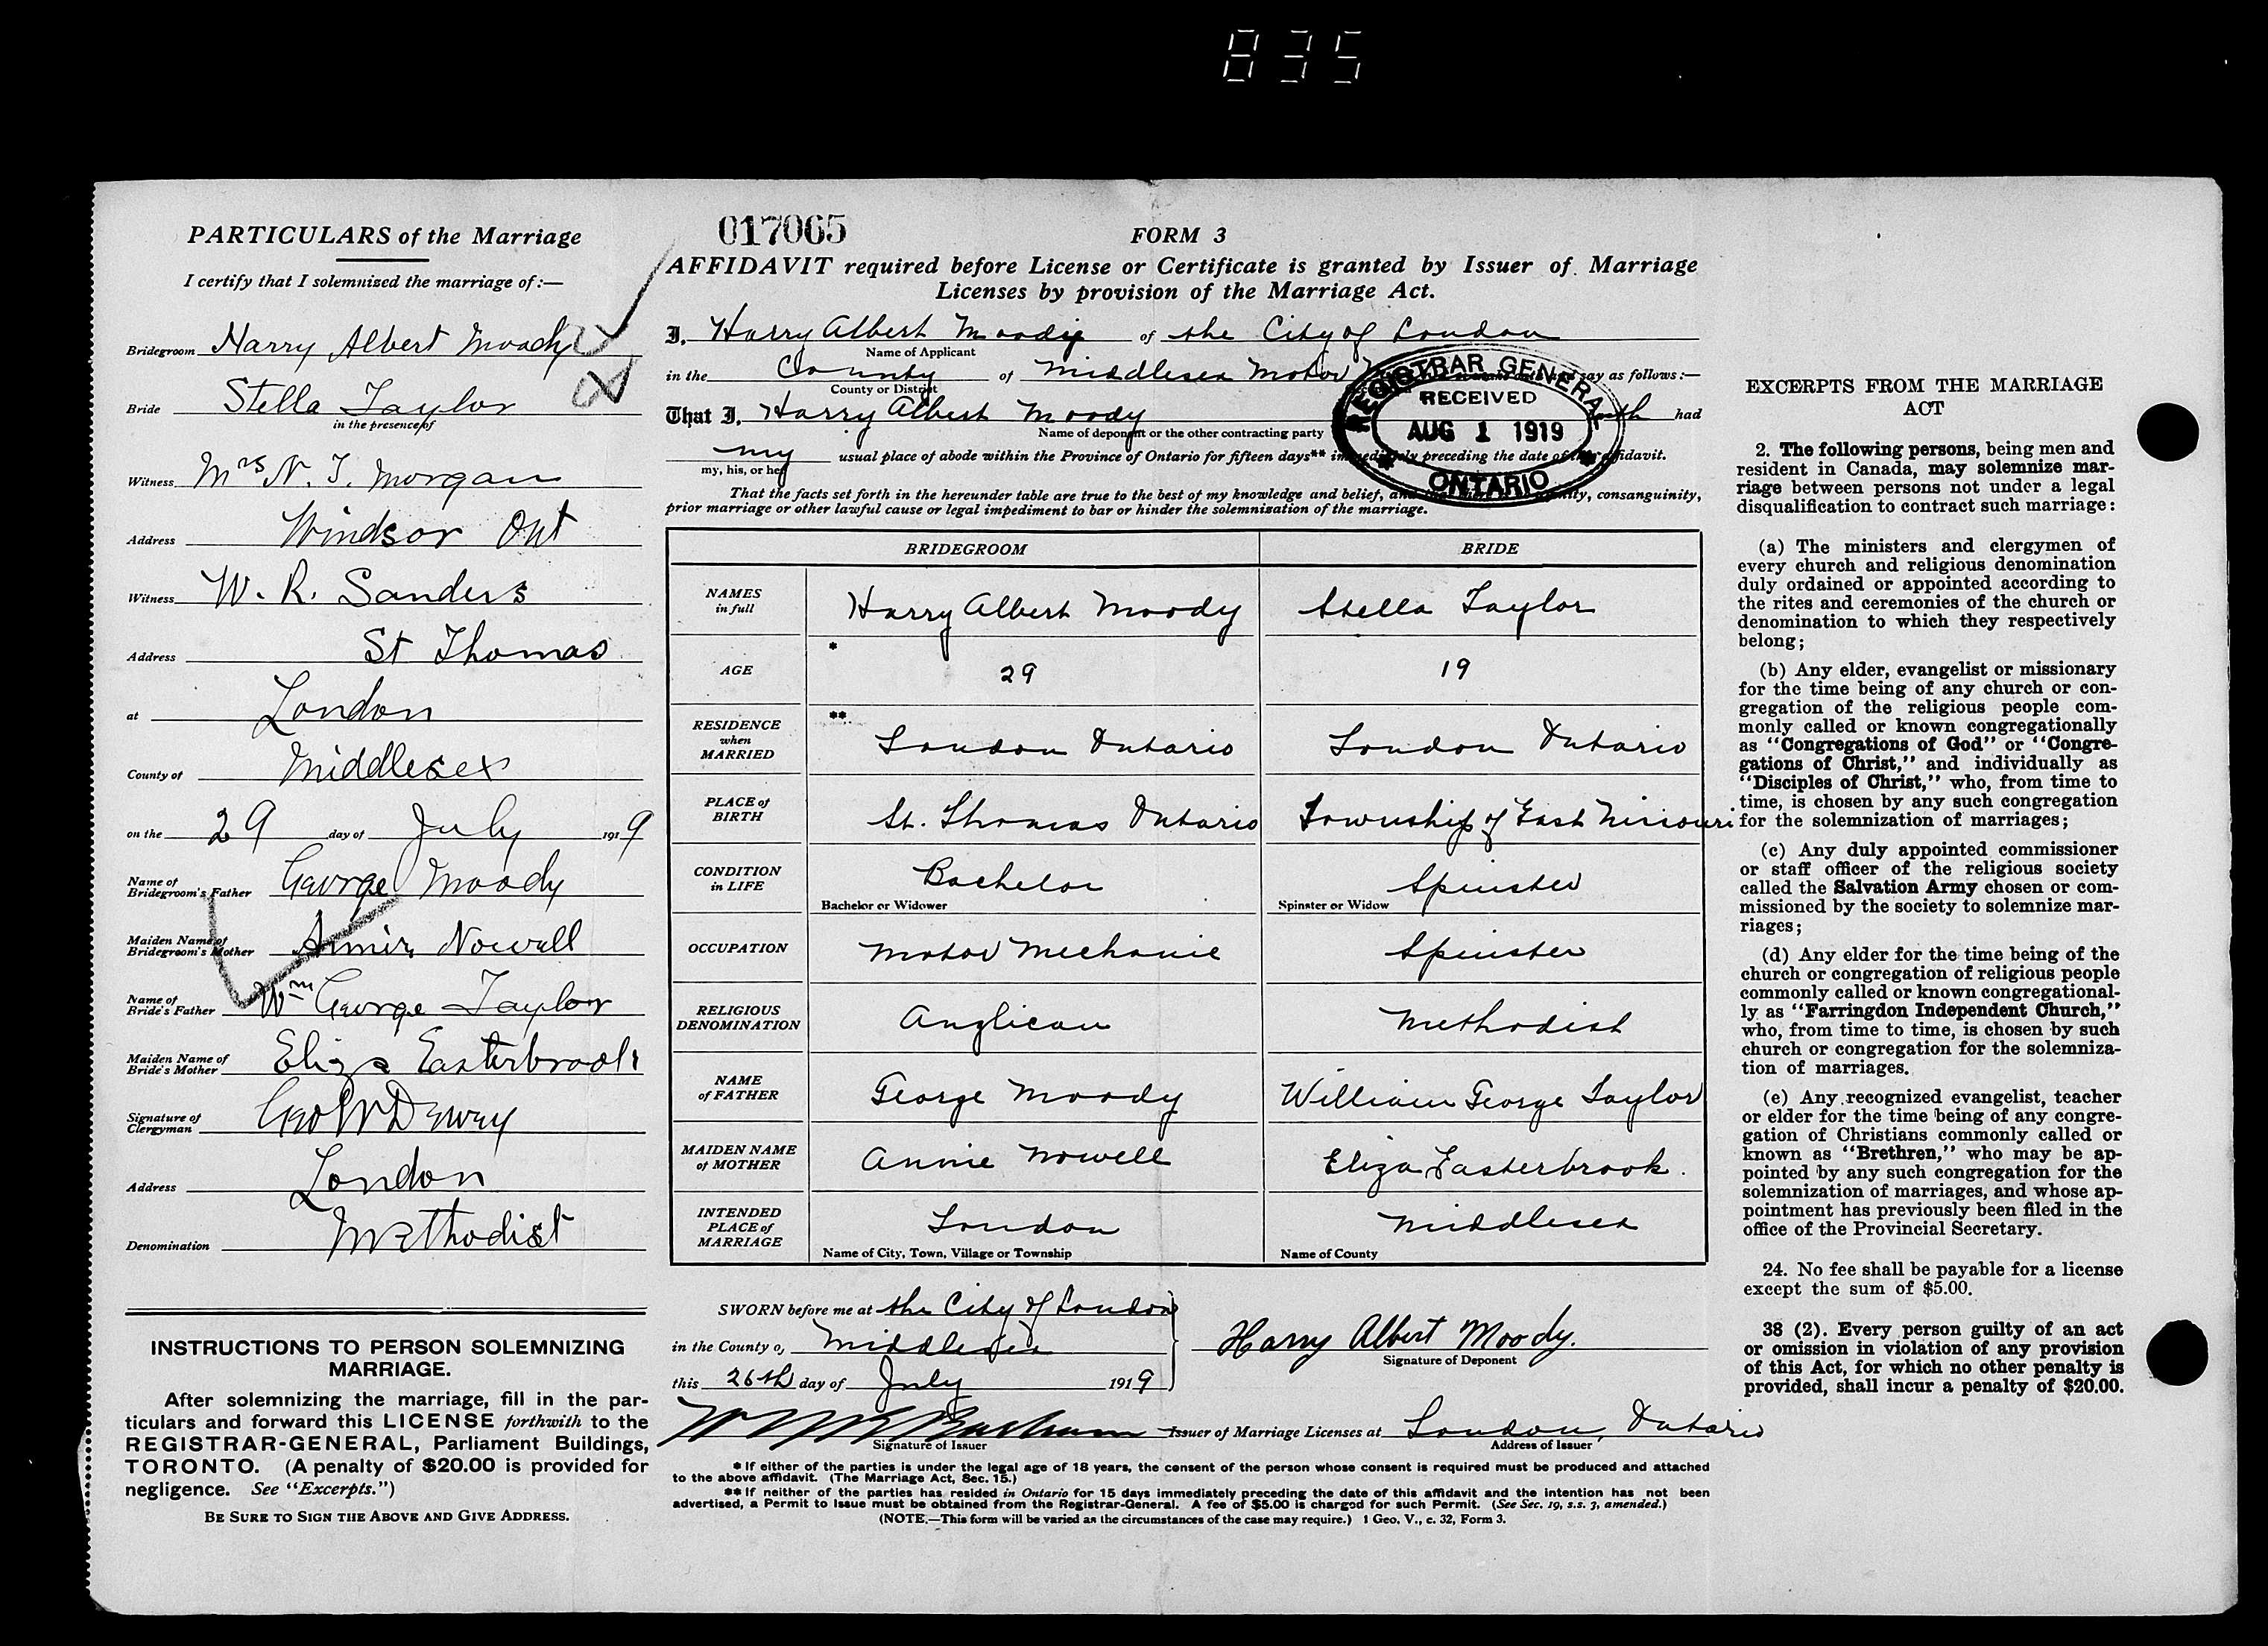 835
PARTICULARS of the Marriage
I certify that I solemnized the marriage of:—
Bridegroom Harry Albert Moody
Bride Stella Taylor
in the presence of
Witness Mrs N. T. Morgan
Address Windsor Ont
Witness W. R. Sanders
Address St Thomas
at London
County of Middlesex
on the 29 day of July 1919
Name of
Bridegroom's Father George Moody
Maiden Name of
Bridegroom's Mother Nowell
Name of
Bride's Father Wm George Taylor
Maiden Name of
Bride's Mother Eliza Easterbrook
Signature of
Clergyman Geo W Dewey
Address London
Denomination Methodist
INSTRUCTIONS TO PERSON SOLEMNIZING
MARRIAGE.
After solemnizing the marriage, fill in the par-
ticulars and forward this LICENSE forthwith to the
REGISTRAR-GENERAL, Parliament Buildings,
TORONTO. (A penalty of $20.00 is provided for
negligence. See "Excerpts.")
BE SURE TO SIGN THE ABOVE AND GIVE ADDRESS.
017065
FORM 3
AFFIDAVIT required before License or Certificate is granted by Issuer of Marriage
Licenses by provision of the Marriage Act.
I, Harry Albert Moody of the City of London
Name of Applicant
in the County of Middlesex Motor say as follows:—
County or District
That I, Harry Albert Moody had
Name of deponent or the other contracting party
my usual place of abode within the Province of Ontario for fifteen days** immediately preceding the date of this affidavit.
my, his, or her
REGISTRAR GENERAL
RECEIVED
AUG 1 1919
ONTARIO
That the facts set forth in the hereunder table are true to the best of my knowledge and belief, and consanguinity,
prior marriage or other lawful cause or legal impediment to bar or hinder the solemnization of the marriage.
BRIDEGROOM BRIDE
NAMES
in full Harry Albert Moody Stella Taylor
AGE * 29 19
RESIDENCE
when
MARRIED ** London Ontario London Ontario
PLACE of
BIRTH St. Thomas Ontario Township of East Nissouri
CONDITION
in LIFE Bachelor Spinster
Bachelor or Widower Spinster or Widow
OCCUPATION Motor Mechanic Spinster
RELIGIOUS
DENOMINATION Anglican Methodist
NAME
of FATHER George Moody William George Taylor
MAIDEN NAME
of MOTHER Annie Nowell Eliza Easterbrook.
INTENDED
PLACE of
MARRIAGE London Middlesex
Name of City, Town, Village or Township Name of County
SWORN before me at the City of London
in the County of Middlesex
this 26th day of July 1919
Harry Albert Moody.
Signature of Deponent
Issuer of Marriage Licenses at London, Ontario
Signature of Issuer Address of Issuer
* If either of the parties is under the legal age of 18 years, the consent of the person whose consent is required must be produced and attached
to the above affidavit. (The Marriage Act, Sec. 15.)
** If neither of the parties has resided in Ontario for 15 days immediately preceding the date of this affidavit and the intention has not been
advertised, a Permit to Issue must be obtained from the Registrar-General. A fee of $5.00 is charged for such Permit. (See Sec. 19, s.s. 3, amended.)
(NOTE.—This form will be varied as the circumstances of the case may require.) 1 Geo. V., c. 32, Form 3.
EXCERPTS FROM THE MARRIAGE
ACT
2. The following persons, being men and
resident in Canada, may solemnize mar-
riage between persons not under a legal
disqualification to contract such marriage:
(a) The ministers and clergymen of
every church and religious denomination
duly ordained or appointed according to
the rites and ceremonies of the church or
denomination to which they respectively
belong;
(b) Any elder, evangelist or missionary
for the time being of any church or con-
gregation of the religious people com-
monly called or known congregationally
as "Congregations of God" or "Congre-
gations of Christ," and individually as
"Disciples of Christ," who, from time to
time, is chosen by any such congregation
for the solemnization of marriages;
(c) Any duly appointed commissioner
or staff officer of the religious society
called the Salvation Army chosen or com-
missioned by the society to solemnize mar-
riages;
(d) Any elder for the time being of the
church or congregation of religious people
commonly called or known congregational-
ly as "Farringdon Independent Church,"
who, from time to time, is chosen by such
church or congregation for the solemniza-
tion of marriages.
(e) Any recognized evangelist, teacher
or elder for the time being of any congre-
gation of Christians commonly called or
known as "Brethren," who may be ap-
pointed by any such congregation for the
solemnization of marriages, and whose ap-
pointment has previously been filed in the
office of the Provincial Secretary.
24. No fee shall be payable for a license
except the sum of $5.00.
38 (2). Every person guilty of an act
or omission in violation of any provision
of this Act, for which no other penalty is
provided, shall incur a penalty of $20.00.